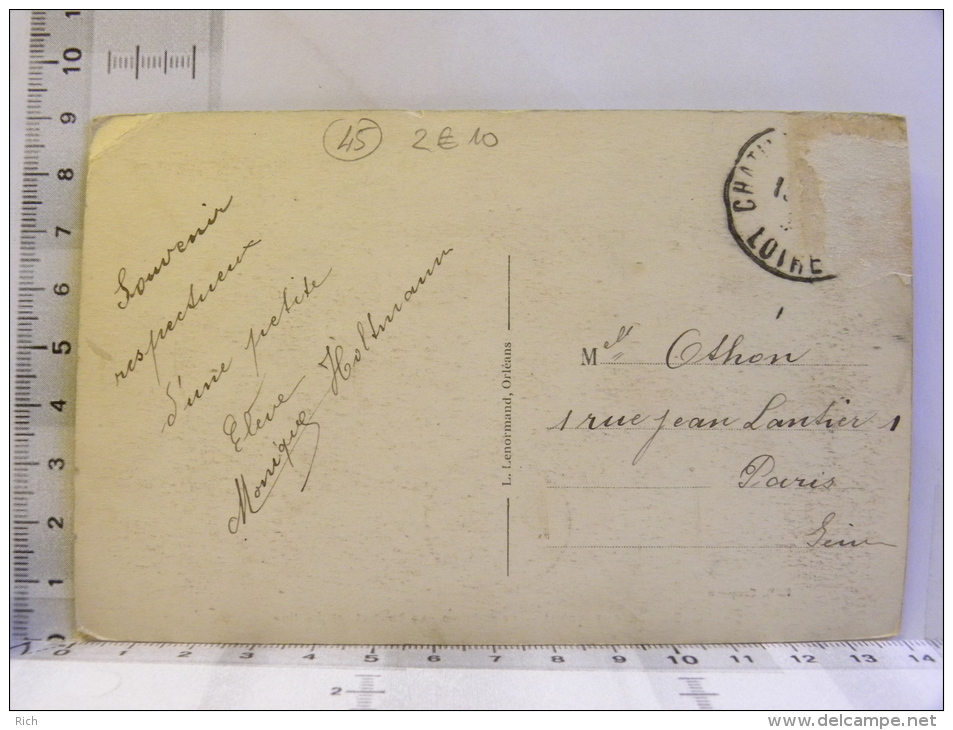 45 2€10
Souvenir
respectueux
d'une petite
Elève
Monique Holtmann
L. Lenormand, Orléans
CHAT
LOIRE
Melle Othon
1 rue Jean Lantier 1
Paris
Seine
0 1 2 3 4 5 6 7 8 9 10 11 12 13 14
1 2 3 4 5 6 7 8 9 10
2
Rich
www.delcampe.net